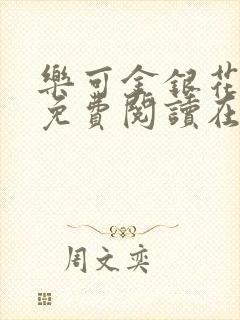 樂可金銀花
免費閱讀在
周文奕